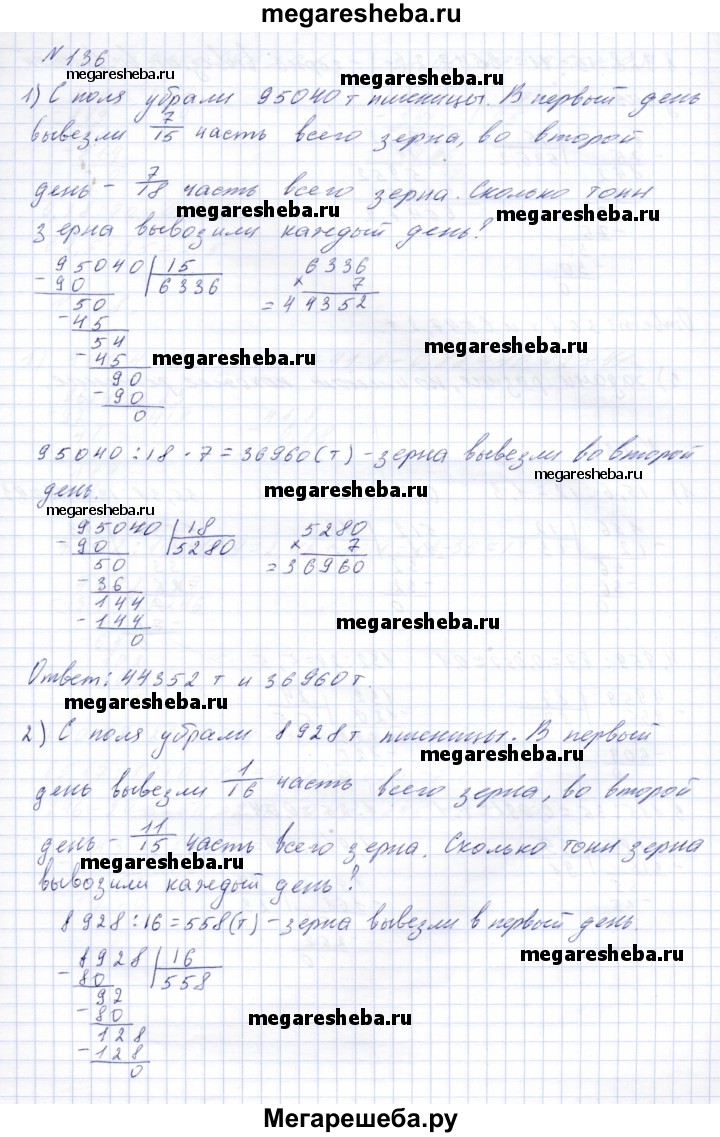 megaresheba.ru
N 136
megaresheba.ru megaresheba.ru
1) С поля убрали 95040 т пшеницы. В первый день
вывезли 7/15 часть всего зерна, во второй
день - 7/18 часть всего зерна. Сколько тонн
megaresheba.ru megaresheba.ru
зерна вывозили каждый день?
95040 | 15 6336
- 90 6336 × 7
50 = 44352
- 45
54
- 45 megaresheba.ru megaresheba.ru
90
- 90
0
95040 : 18 · 7 = 36960 (т) - зерна вывезли во второй
megaresheba.ru
день. megaresheba.ru
megaresheba.ru
95040 | 18 5280
- 90 5280 × 7
50 = 36960
- 36
144
- 144 megaresheba.ru
0
Ответ: 44352 т и 36960 т.
megaresheba.ru
2) С поля убрали 8928 т пшеницы. В первый
megaresheba.ru
день вывезли 1/16 часть всего зерна, во второй
день - 11/15 часть всего зерна. Сколько тонн зерна
megaresheba.ru
вывозили каждый день?
8928 : 16 = 558 (т) - зерна вывезли в первый день.
megaresheba.ru
8928 | 16
- 80 558
92
- 80 megaresheba.ru
128
- 128
0
Мегарешеба.ру